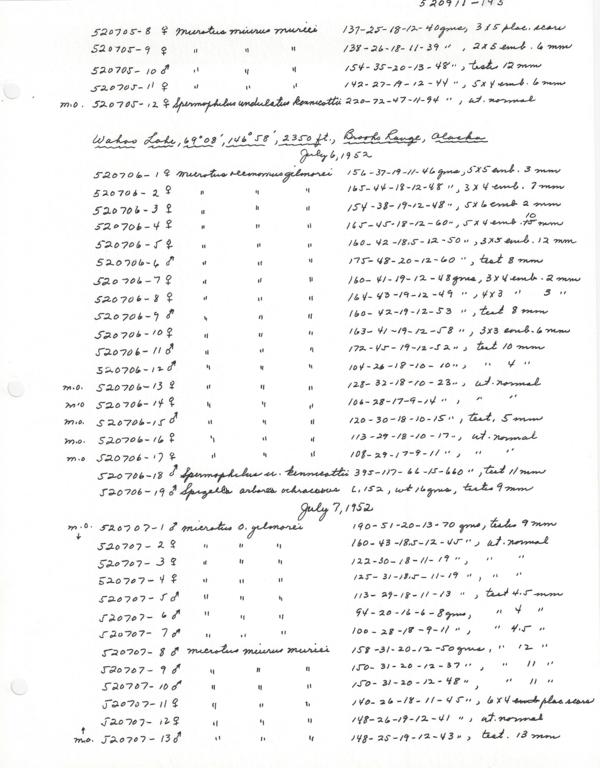 520911-195
520705-8 ♀ Microtus miurus muriei 137-25-18-12-40gms, 3x5 plac. scars
520705-9 ♀ " " " 138-26-18-11-39 ", 2x5 emb. 6 mm
520705-10 ♂ " " " 154-35-20-13-48 ", testis 12 mm
520705-11 ♀ " " " 142-27-19-12-44 ", 5x4 emb. 6mm
m.o. 520705-12 ♀ Spermophilus undulatus kennicottii 220-72-47-11-94 ", ut. normal
Wahoo Lake, 69°08', 146°58', 2350 ft., Brooks Range, Alaska
July 6, 1952
520706-1 ♀ Microtus oeconomus gilmorei 156-37-19-11-46 gms, 5x5 emb. 3 mm
520706-2 ♀ " " " 165-44-18-12-48 ", 3x4 emb. 7 mm
520706-3 ♀ " " " 154-38-19-12-48 ", 5x6 emb 2 mm
520706-4 ♀ " " " 165-45-18-12-60 ", 5x4 emb. 10 mm
520706-5 ♀ " " " 160-42-18.5-12-50 ", 3x5 emb. 12 mm
520706-6 ♂ " " " 175-48-20-12-60 ", test 8 mm
520706-7 ♀ " " " 160-41-19-12-48gms, 3x4 emb. 2 mm
520706-8 ♀ " " " 164-43-19-12-49 ", 4x3 " 3 "
520706-9 ♂ " " " 160-42-19-12-53 ", test 8 mm
520706-10 ♀ " " " 163-41-19-12-58 ", 3x3 emb. 6 mm
520706-11 ♂ " " " 172-45-19-12-52 ", test 10 mm
520706-12 ♂ " " " 104-26-18-10-10 ", " 4 "
m.o. 520706-13 ♀ " " " 128-32-18-10-23 ", ut. normal
m.o 520706-14 ♀ " " " 106-28-17-9-14 ", " "
m.o. 520706-15 ♂ " " " 120-30-18-10-15 ", test. 5 mm
m.o. 520706-16 ♀ " " " 113-29-18-10-17-, ut. normal
m.o. 520706-17 ♀ " " " 108-29-17-9-11 ", " "
520706-18 ♂ Spermophilus u. kennicottii 395-117-66-15-660 ", test 11 mm
520706-19 ♂ Spizella arborea ochracea L.152, wt 16gms, testis 9mm
July 7, 1952
m.o. 520707-1 ♂ Microtus o. gilmorei 190-51-20-13-70 gms, testes 9 mm
↓ 520707-2 ♀ " " " 160-43-18.5-12-45 ", ut. normal
520707-3 ♀ " " " 122-30-18-11-19 ", " "
520707-4 ♀ " " " 125-31-18.5-11-19 ", " "
520707-5 ♂ " " " 113-29-18-11-13 ", test 4.5 mm
520707-6 ♂ " " " 94-20-16-6-8gms, " 4 "
520707-7 ♂ " " " 100-28-18-9-11 ", " 4.5 "
520707-8 ♂ Microtus miurus muriei 158-31-20-12-50gms, " 12 "
520707-9 ♂ " " " 150-31-20-12-37 ", " 11 "
520707-10 ♂ " " " 150-31-20-12-48 ", " 11 "
520707-11 ♀ " " " 140-26-18-11-45 ", 6x4 emb plac scars
↑ 520707-12 ♀ " " " 148-26-19-12-41 ", ut. normal
m.o. 520707-13 ♂ " " " 148-25-19-12-43 ", test. 13 mm